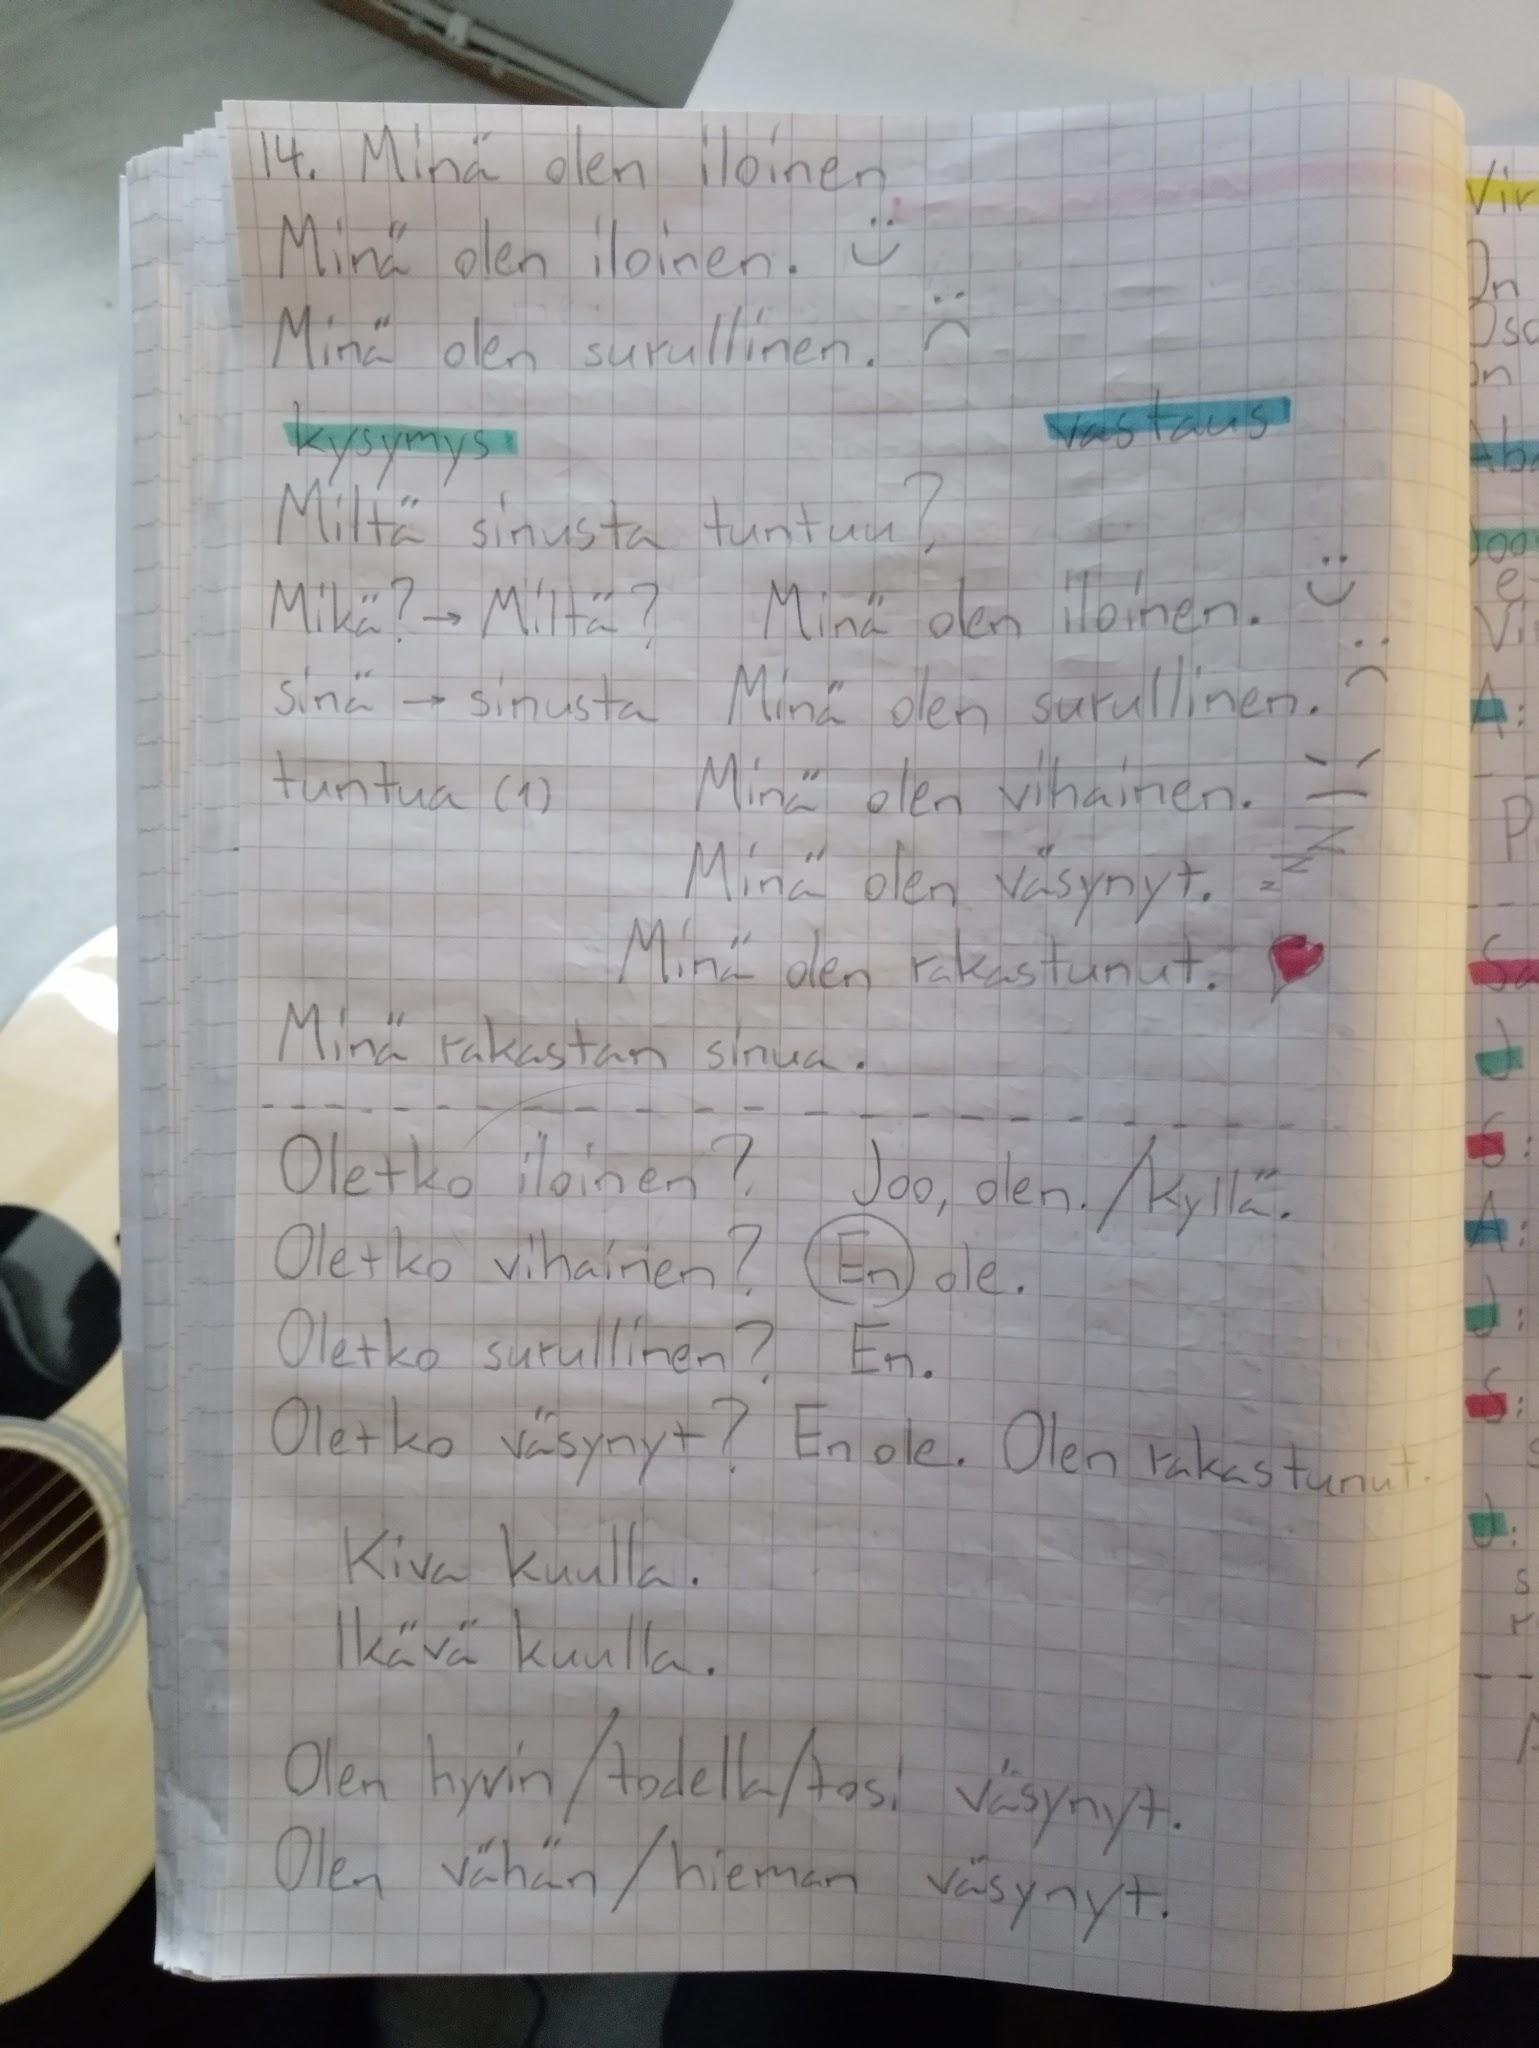 14. Minä olen iloinen
Minä olen iloinen. :)
Minä olen surullinen. :(
kysymys vastaus
Miltä sinusta tuntuu?
Mikä? → Miltä? Minä olen iloinen. :)
sinä → sinusta Minä olen surullinen. :(
tuntua (1) Minä olen vihainen.
Minä olen väsynyt. zzz
Minä olen rakastunut. ♥
Minä rakastan sinua.
Oletko iloinen? Joo, olen./kyllä.
Oletko vihainen? En ole.
Oletko surullinen? En.
Oletko väsynyt? En ole. Olen rakastunut.
Kiva kuulla.
Ikävä kuulla.
Olen hyvin/todella/tosi väsynyt.
Olen vähän/hieman väsynyt.